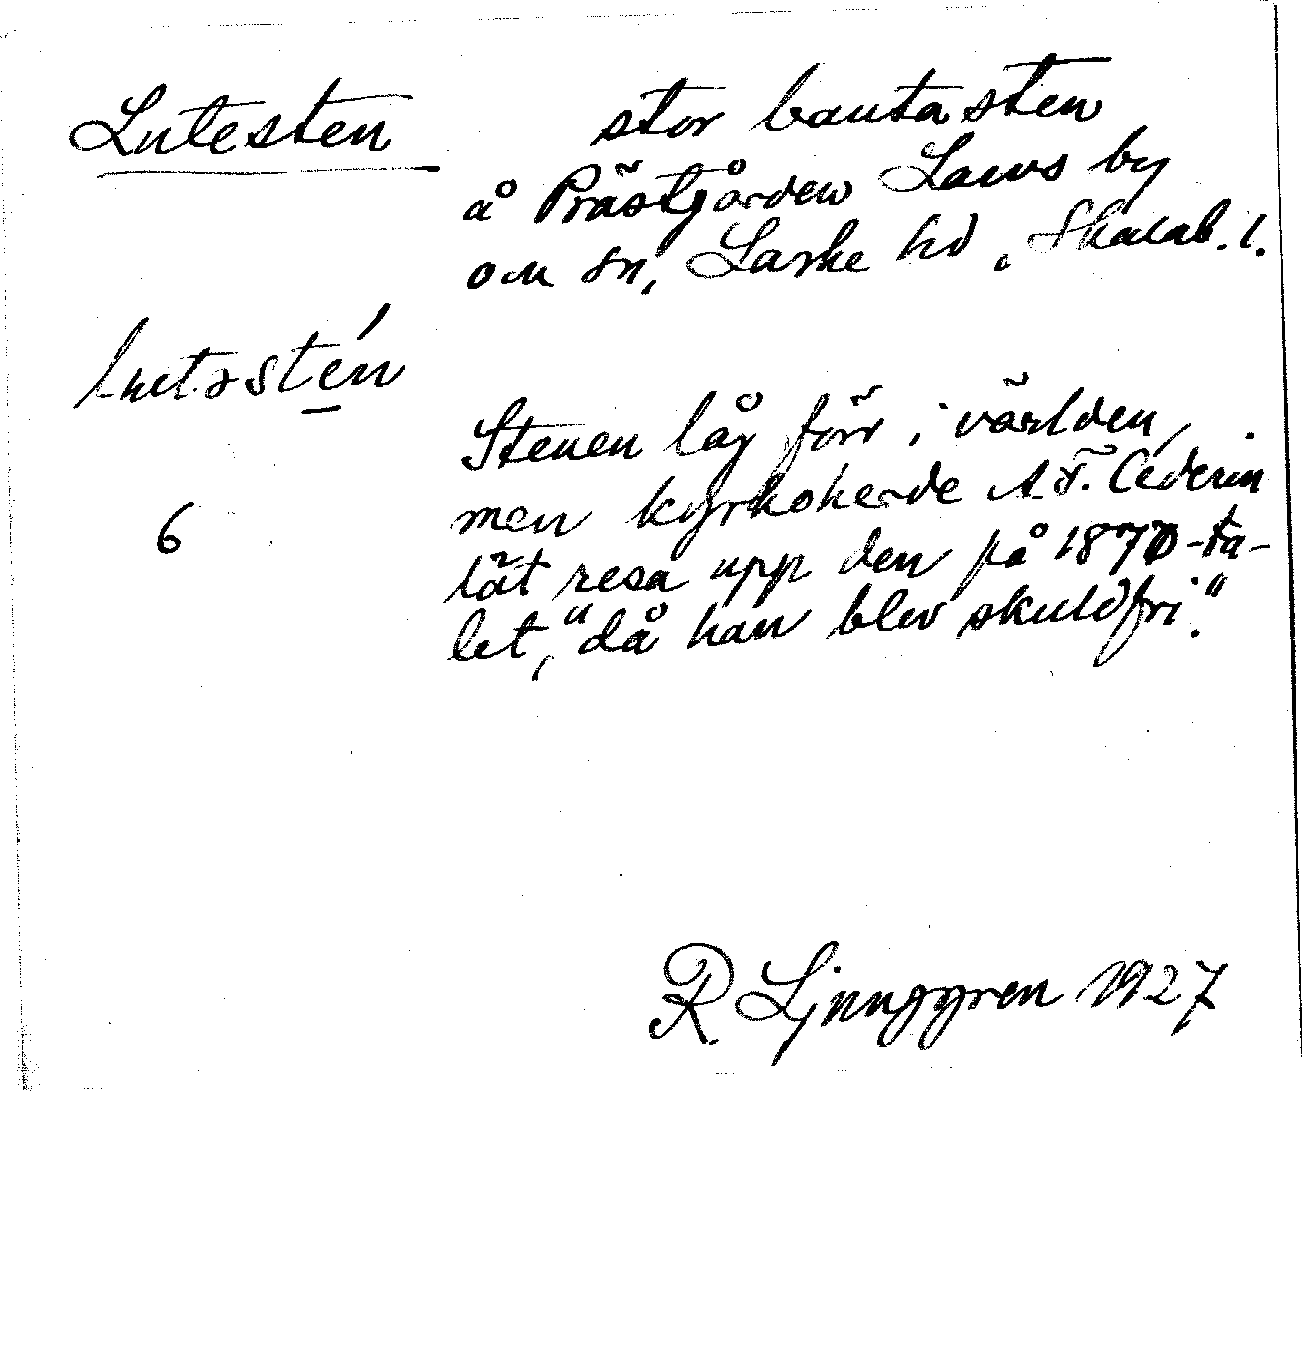 Lutesten
stor bautasten
å Prästgården Larvs by
och sn, Laske hd, Skarab. l.
Stenen låg förr i världen,
men kyrkoherde A. F. Cederin
lät resa upp den på 1870-ta-
let, "då han blev skuldfri."
6
R Ljunggren 1927